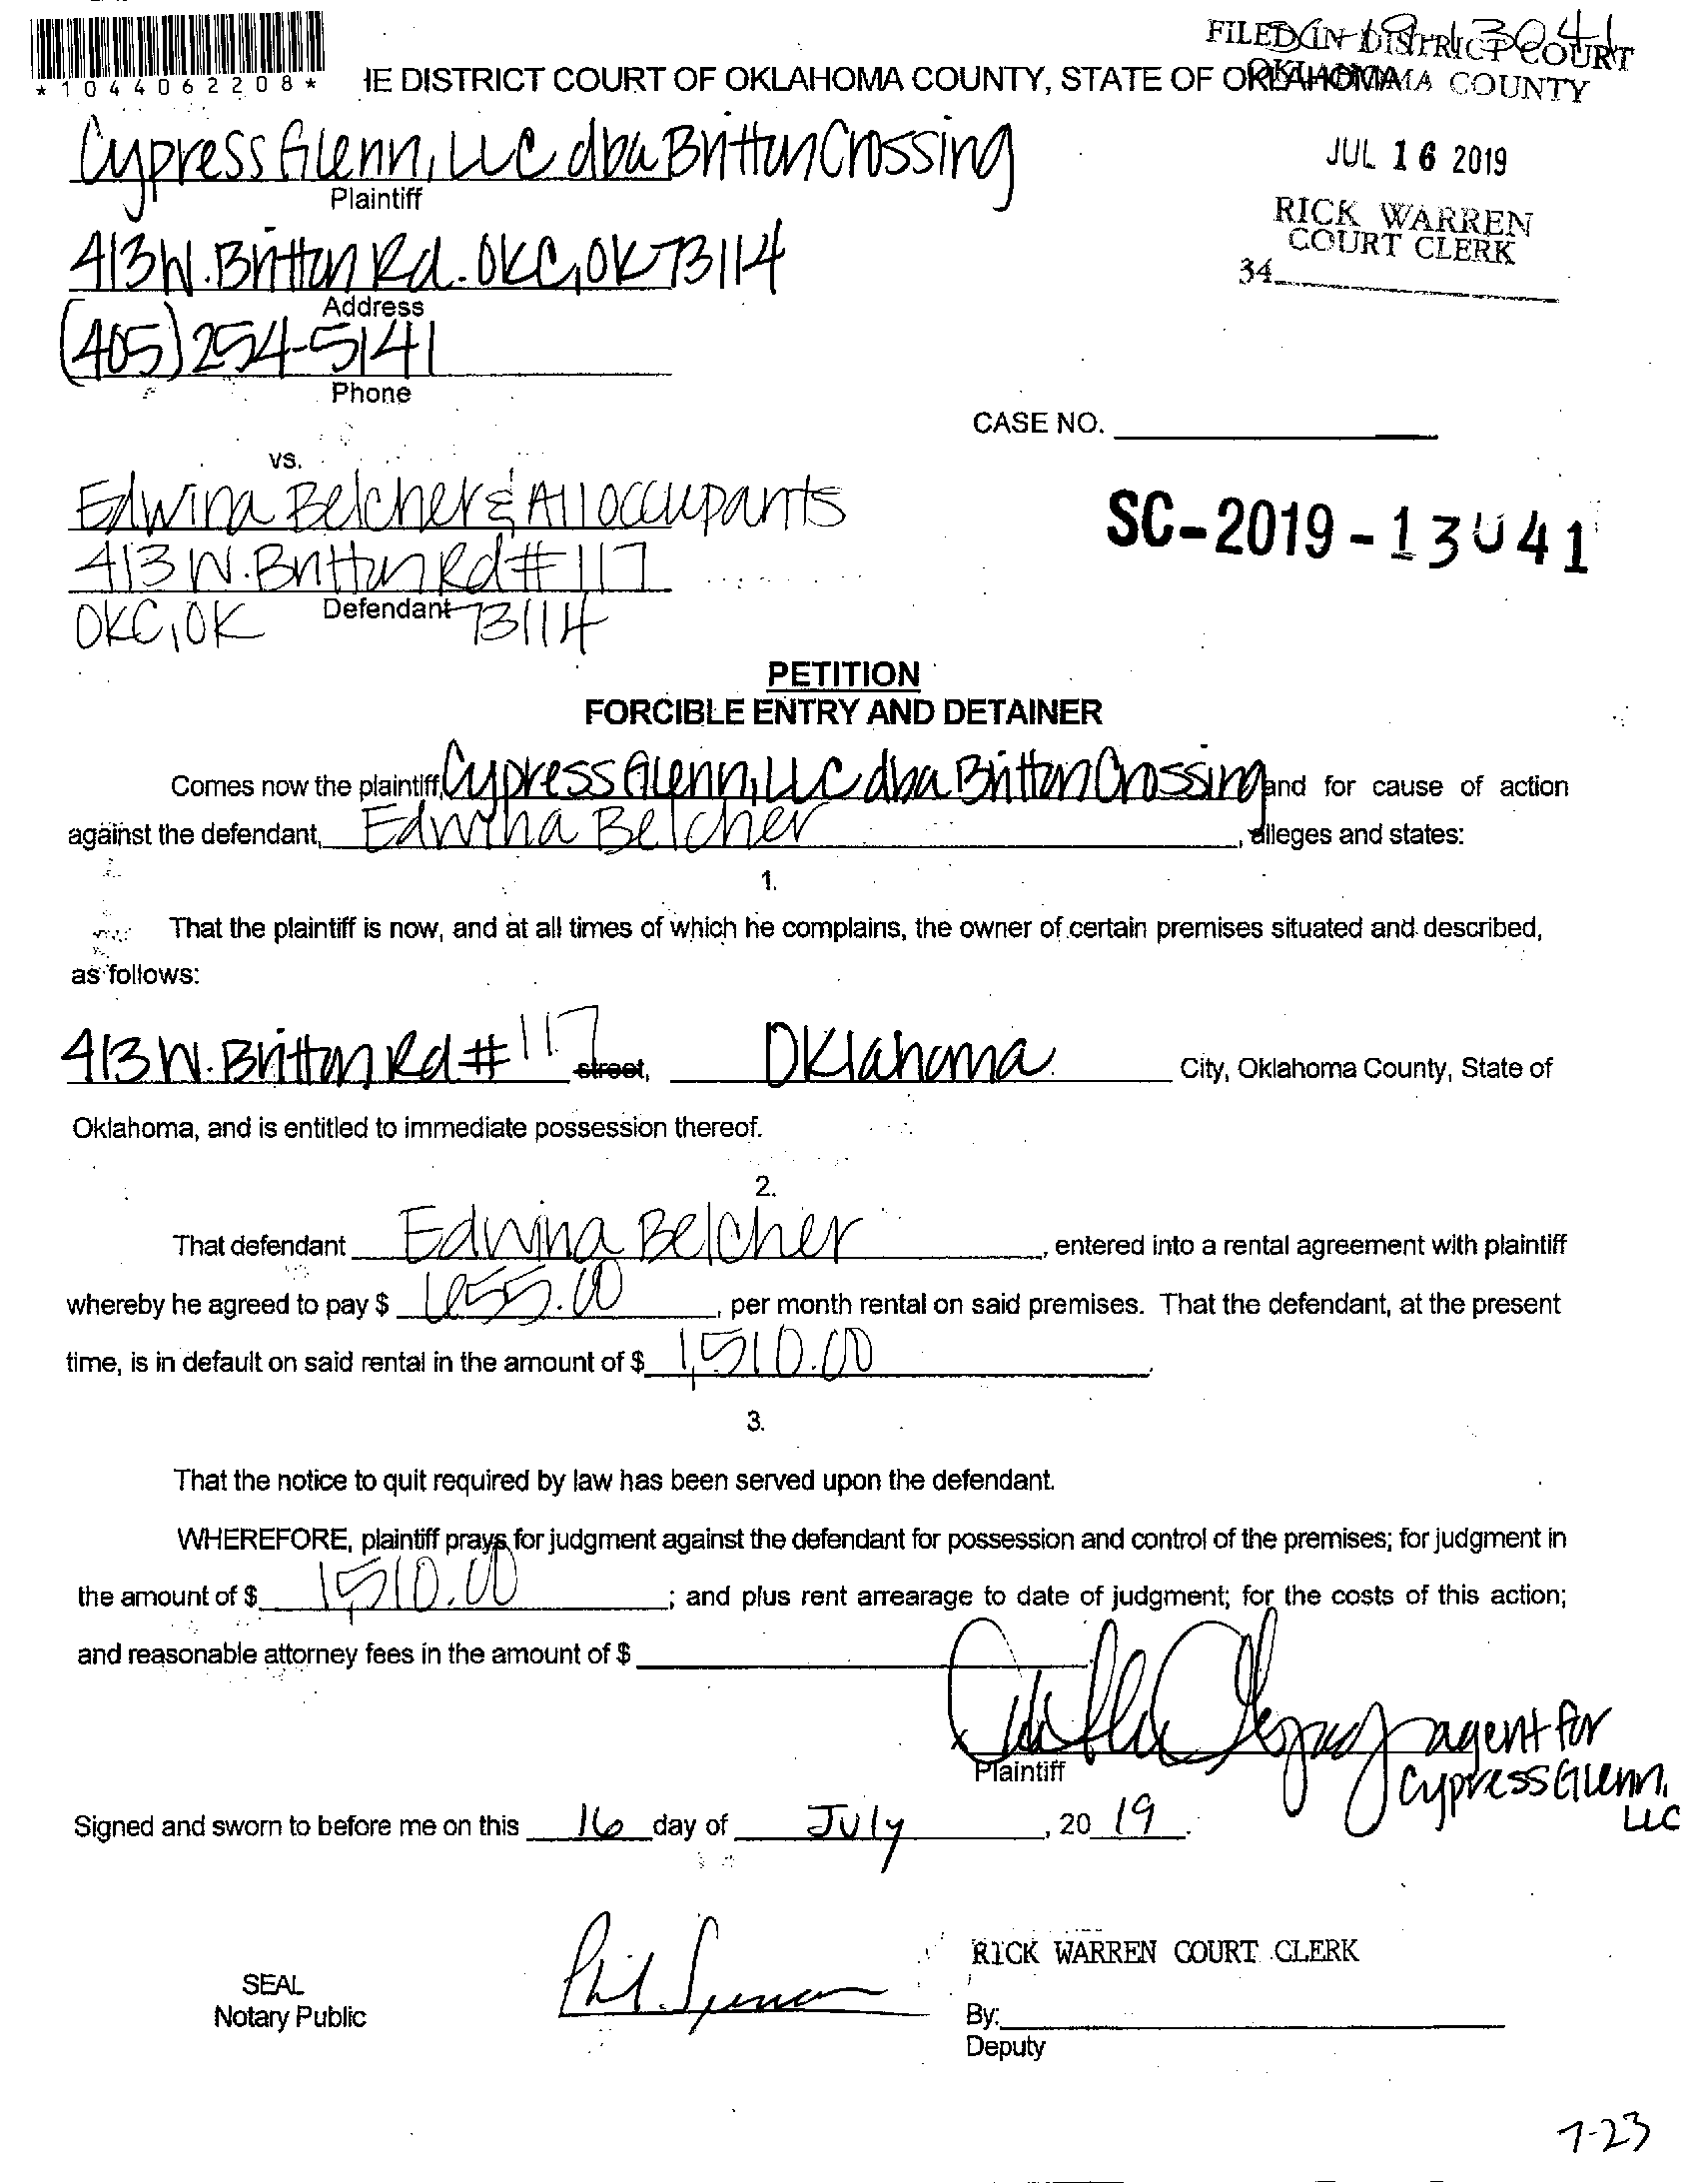 *1044062208*
IE DISTRICT COURT OF OKLAHOMA COUNTY, STATE OF OKLAHOMA
FILED IN DISTRICT COURT
OKLAHOMA COUNTY
JUL 16 2019
RICK WARREN
COURT CLERK
34
Cypress Glenn, LLC dba Britton Crossing
Plaintiff
413 W. Britton Rd. OKC, OK 73114
Address
(405) 254-5141
Phone
CASE NO.
vs.
Edwina Belcher & All occupants
SC-2019-13041
413 W. Britton Rd #117
Defendant
OKC, OK 73114
PETITION
FORCIBLE ENTRY AND DETAINER
Comes now the plaintiff, Cypress Glenn, LLC dba Britton Crossing and for cause of action
against the defendant, Edwina Belcher, alleges and states:
1.
That the plaintiff is now, and at all times of which he complains, the owner of certain premises situated and described,
as follows:
413 W. Britton Rd #117 street, Oklahoma City, Oklahoma County, State of
Oklahoma, and is entitled to immediate possession thereof.
2.
That defendant Edwina Belcher, entered into a rental agreement with plaintiff
whereby he agreed to pay $ 655.00, per month rental on said premises. That the defendant, at the present
time, is in default on said rental in the amount of $ 1,510.00.
3.
That the notice to quit required by law has been served upon the defendant.
WHEREFORE, plaintiff prays for judgment against the defendant for possession and control of the premises; for judgment in
the amount of $ 1,510.00; and plus rent arrearage to date of judgment; for the costs of this action;
and reasonable attorney fees in the amount of $
agent for
Plaintiff
Cypress Glenn,
LLC
Signed and sworn to before me on this 16 day of July, 2019.
RICK WARREN COURT CLERK
SEAL
Notary Public
By:
Deputy
7-23